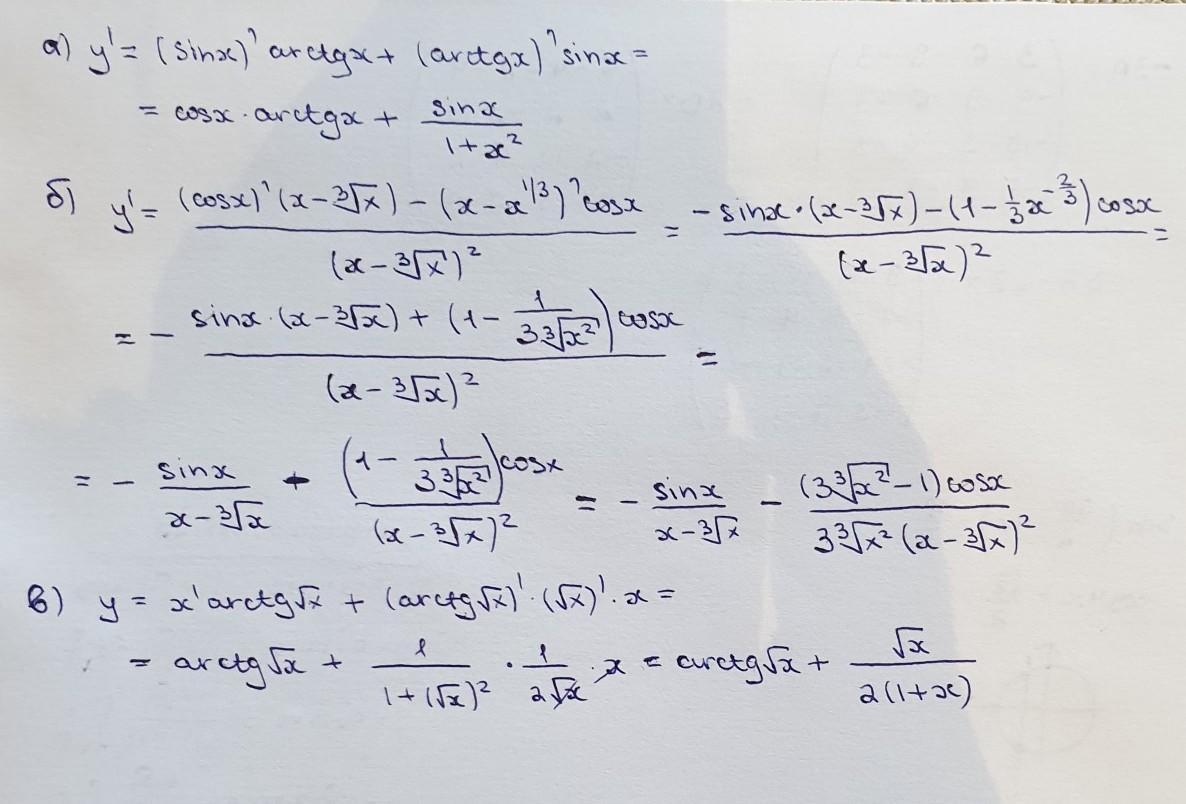 а) y' = (sinx)' arctgx + (arctgx)' sinx =
= cosx · arctgx + sinx/(1+x²)
б) y' = ((cosx)' (x-∛x) - (x-x^(1/3))' cosx)/(x-∛x)² = (-sinx·(x-∛x) - (1-1/3 x^(-2/3)) cosx)/(x-∛x)² =
= - (sinx·(x-∛x) + (1 - 1/(3∛x²)) cosx)/(x-∛x)² =
= - sinx/(x-∛x) - ((1 - 1/(3∛x²)) cosx)/(x-∛x)² = - sinx/(x-∛x) - ((3∛x² - 1) cosx)/(3∛x² (x-∛x)²)
в) y = x' arctg√x + (arctg√x)' · (√x)' · x =
= arctg√x + 1/(1+(√x)²) · 1/(2√x) · x = arctg√x + √x/(2(1+x))